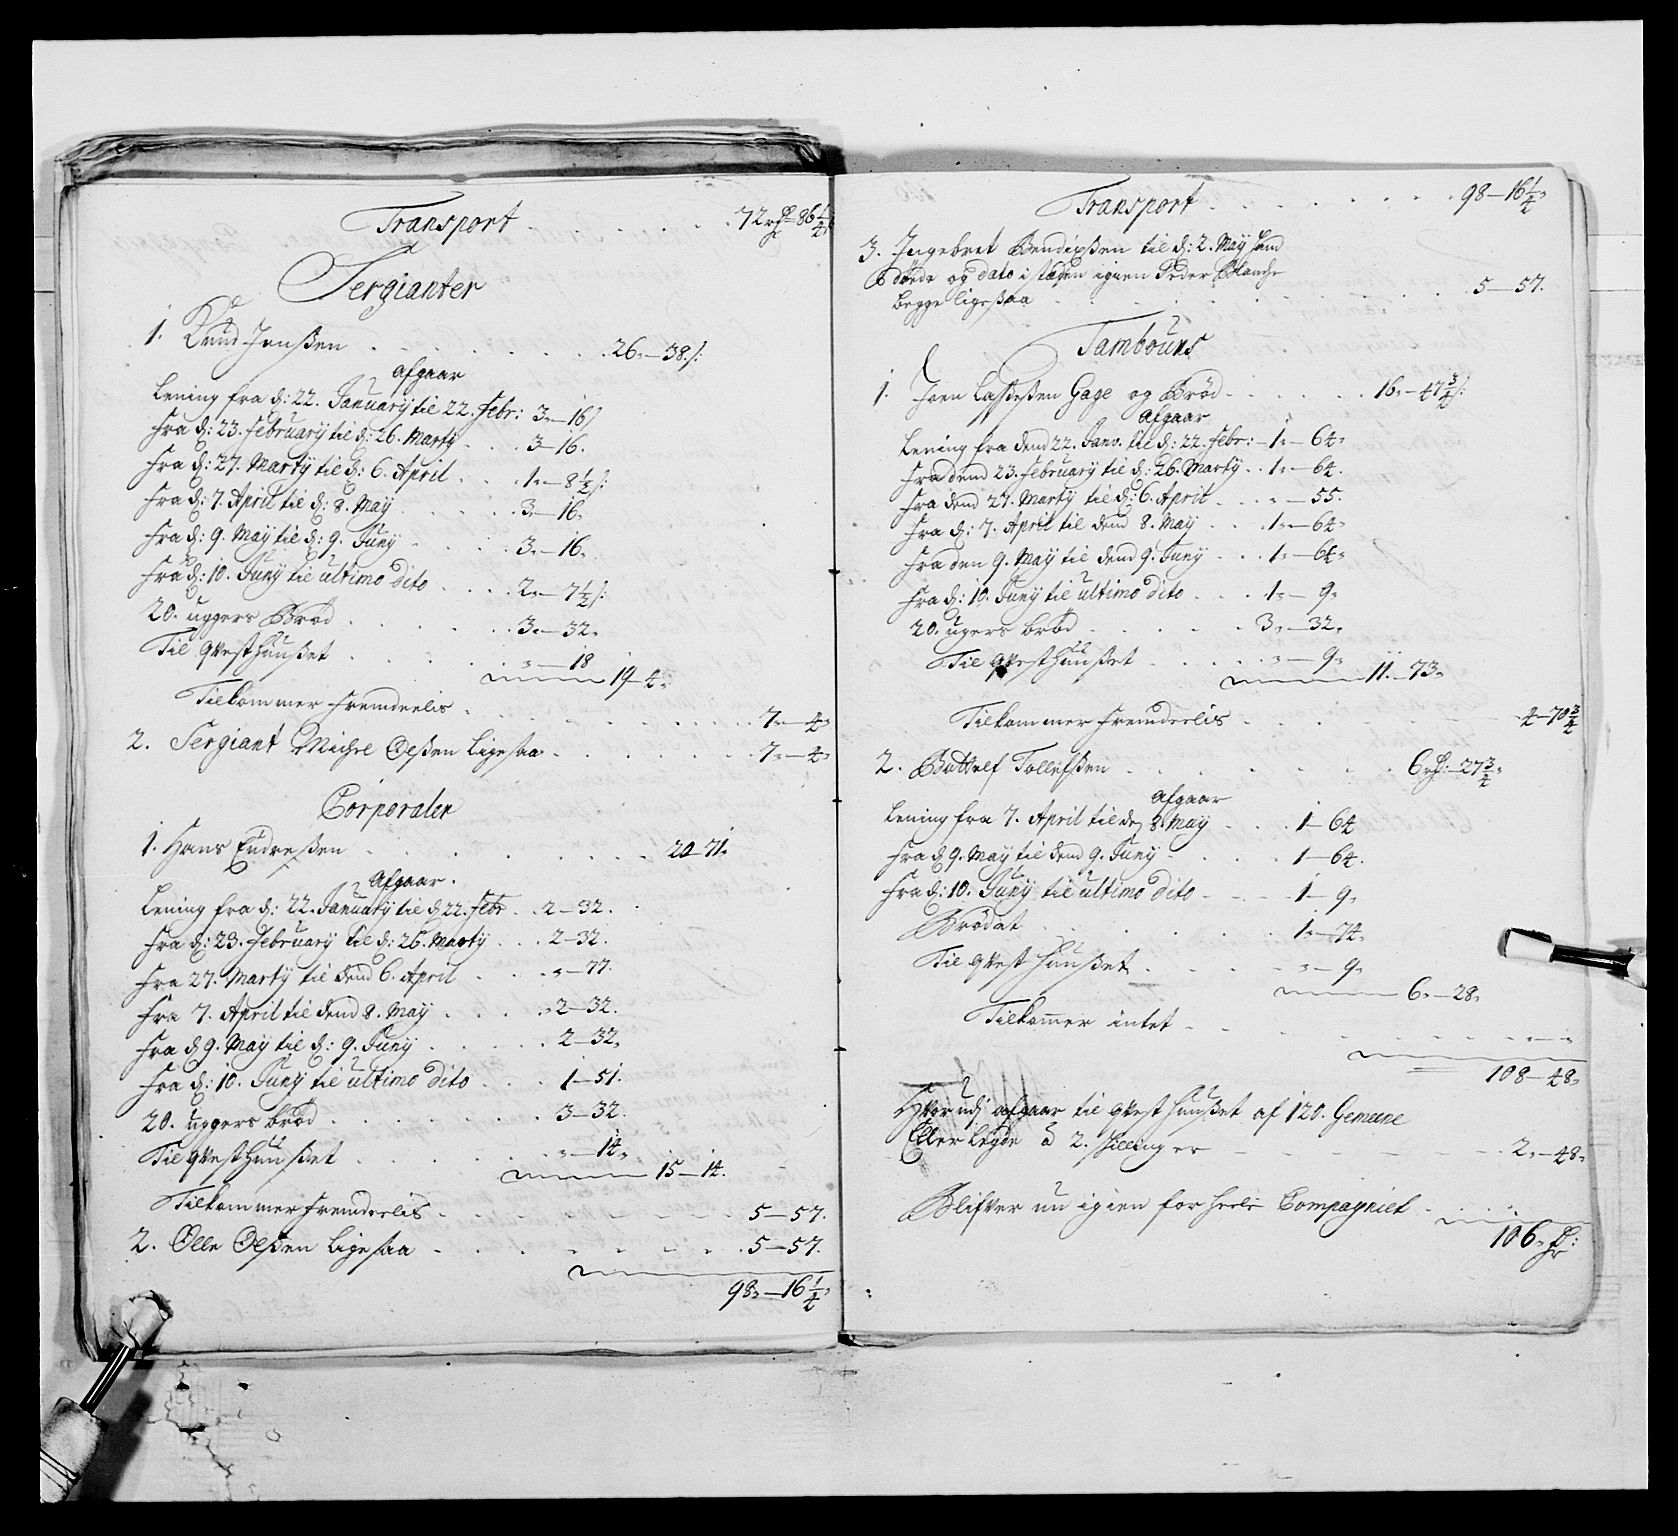 Transport . . . . . . 72 rd 86 1/4
Sergianter
1. Knud Jenßen . . . . . . 26 - 38 ß:
Afgaar
Lening fra d: 22. January til 22. Febr: 3 - 16 ß
Fra d: 23. February til d: 26. Marty . . 3 - 16.
Fra d: 27. Marty til d: 6. April . . . 1 - 8 1/2 ß:
Fra d: 7. April til d: 8. May . . . . 3 - 16
Fra d: 9. May til d: 9. Juny . . . . 3 - 16
Fra d: 10. Juny til ultimo dito . . . . 2 - 7 1/2 ß:
20. uggers Brød . . . . . . 3 - 32
Til qvesthuußet . . . . . . - 18
19 - 4
Tilkommer fremdeelis . . . . . . 7 - 4
2. Sergiant Michel Olßen ligesaa . . . . . . 7 - 4
Corporaler
1. Hans Endreßen . . . . . . 20 - 71
Afgaar.
Lening fra d: 22. January til d 22. Febr . . 2 - 32.
Fra d: 23. February til d: 26. Marty . . . 2 - 32.
Fra 27. Marty til dend 6. April . . . - 77.
Fra 7. April til dend 8. May . . . . 2 - 32.
Fra d 9. May til d: 9. Juny . . . . 2 - 32
Fra d: 10. Juny til ultimo dito . . . 1 - 51.
20. uggers brød . . . . . . 3 - 32.
Til qvesthuußet . . . . . . - 14
15 - 14.
Tilkommer fremdeelis . . . . . . 5 - 57.
2. Olle Olßen ligesaa . . . . . . 5 - 57.
98 - 16 1/4
Transport . . . . . . 98 - 16 1/4
3. Ingebret Bendixßen til d: 2. May hand
døde og dato i stæden igien Peder Blanche
begge ligesaa . . . . . . 5 - 57.
Tambours
1. Joen Laßeßen Gage og Brød . . . . . . 16 - 47 3/4 ß:
Afgaar
Lening fra dend 22. Janv. til d: 22. Febr: - 1 - 64
Fra dend 23. February til d: 26. Marty . . 1 - 64.
Fra dend 27. Marty til d: 6. April . . . - 55.
Fra d: 7. April til dend 8. May . . . 1 - 64
Fra den 9. May til dend 9. Juny . . . 1 - 64
Fra d: 10. Juny til ultimo dito . . . 1 - 9
20. ugers brød . . . . . . 3 - 32
Til qvesthuußet . . . . . . - 9
11 - 73
Tilkommer fremdeelis . . . . . . 4 - 70 3/4
2. Bottolf Tollefßen . . . . . . 6 rd: - 27 3/4
Afgaar
Lening fra 7. April til de 8. May . . . 1 - 64
Fra d 9. May til dend 9. Juny . . . 1 - 64.
Fra d: 10. Juny til ultimo dito . . . 1 - 9
Brødet . . . . . . 1 - 74
Til qvest huußet . . . . . . - 9
6 - 28
Tilkommer intet . . . . . .
108 - 48
Hvorudj afgaar til qvest huußet af 120. Gemeene
Eller legde â 2. skillinger . . . . . . 2 - 48
Blifver nu igien for heele Compagniet . . . .
106 rd: